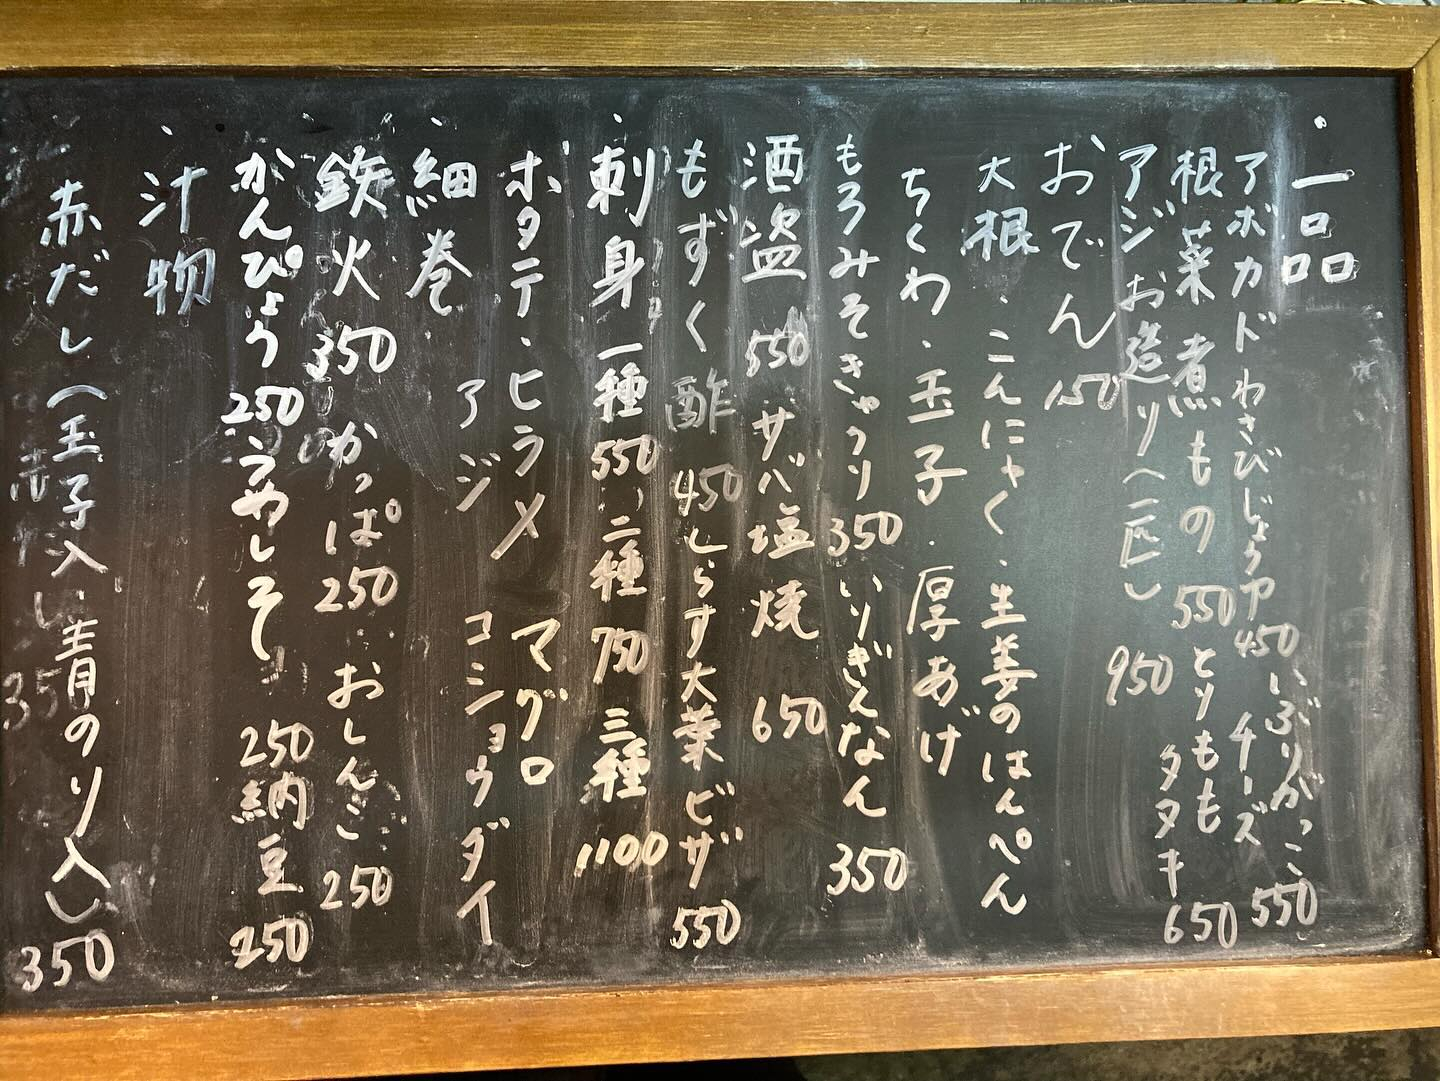 ・一品
アボカドわさびじょうゆ 450 いぶりがっこチーズ 550
根菜煮もの 550 とりももタタキ 650
アジお造り(一匹) 950
おでん 150
大根・こんにゃく・生姜のはんぺん
ちくわ・玉子・厚あげ
もろみそきゅうり 350 いりぎんなん 350
酒盗 550 サバ塩焼 650
もずく酢 450 しらす大葉ピザ 550
・刺身 一種 550 二種 750 三種 1100
ホタテ・ヒラメ マグロ
アジ コショウダイ
・細巻
鉄火 350 かっぱ 250 おしんこ 250
かんぴょう 250 うめしそ 250 納豆 250
・汁物
赤だし(玉子入) 青のり入) 350